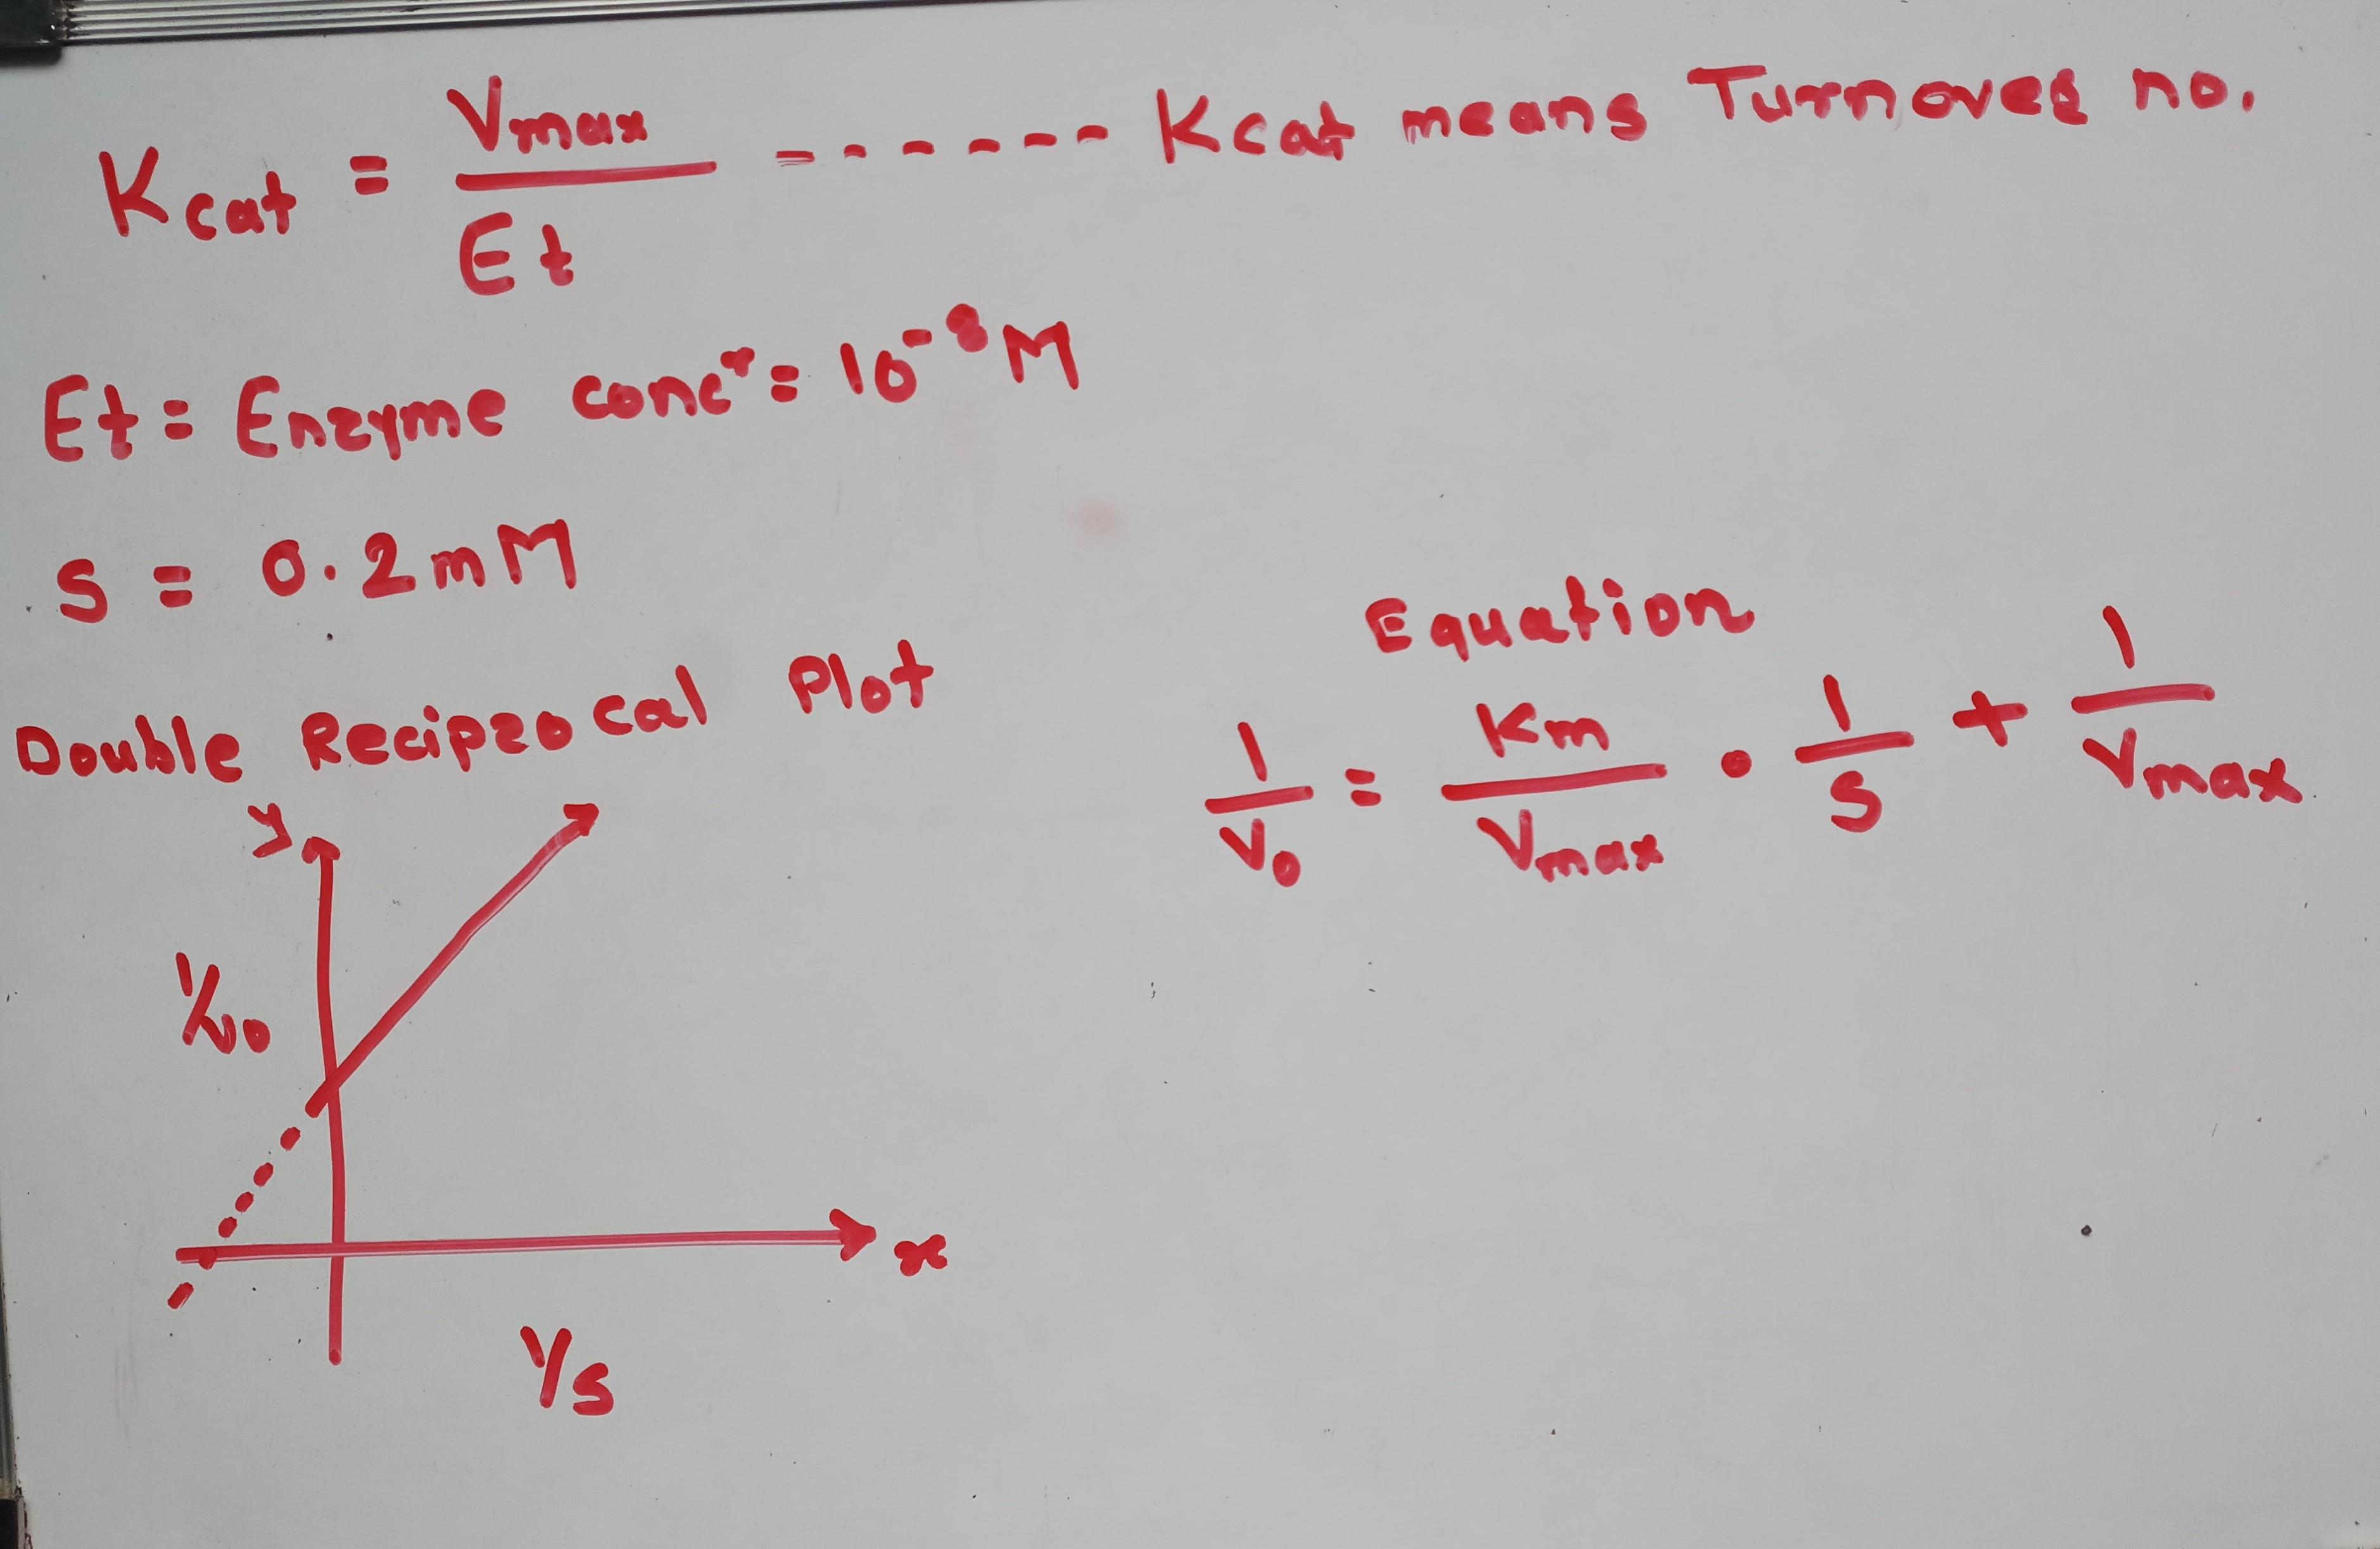 Kcat = Vmax / Et ------ Kcat means Turnover no.
Et = Enzyme concⁿ = 10⁻⁸ M
S = 0.2 mM
Double Reciprocal Plot
Equation
1/V₀ = Km/Vmax • 1/S + 1/Vmax
y
1/V₀
x
1/S